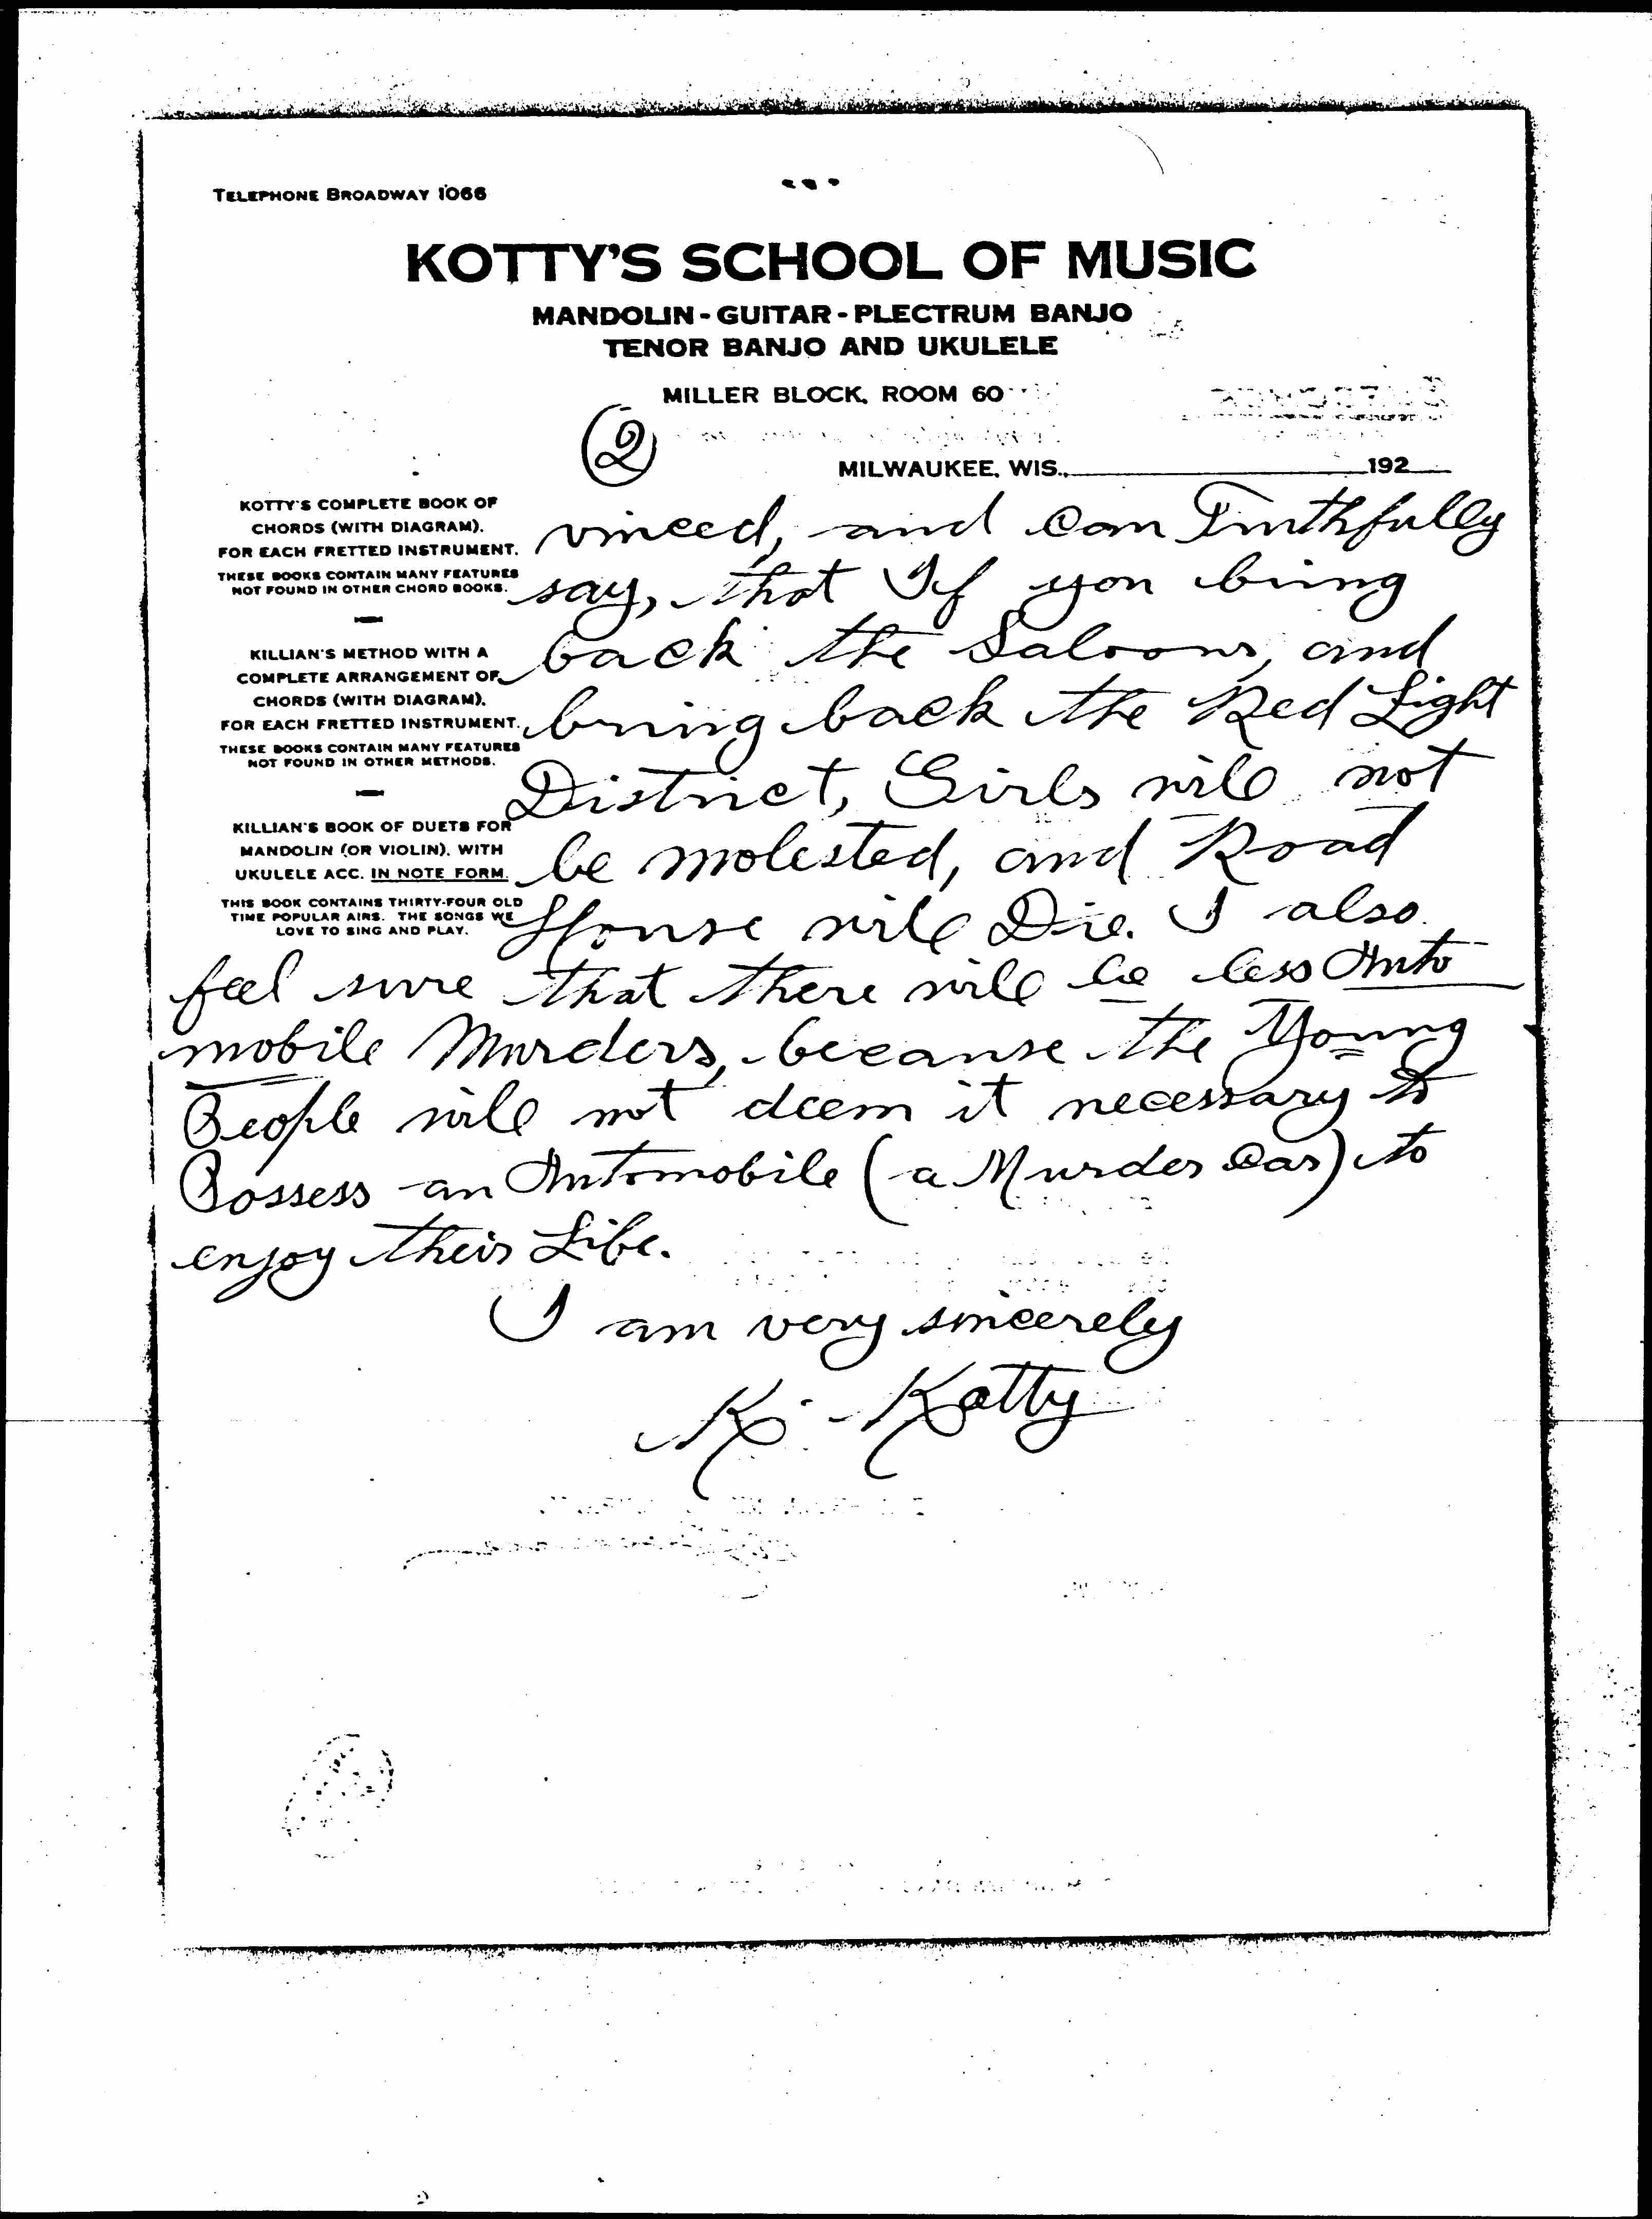 TELEPHONE BROADWAY 1066
KOTTY'S SCHOOL OF MUSIC
MANDOLIN - GUITAR - PLECTRUM BANJO
TENOR BANJO AND UKULELE
MILLER BLOCK, ROOM 60
(2)
MILWAUKEE, WIS., 192
KOTTY'S COMPLETE BOOK OF
CHORDS (WITH DIAGRAM),
FOR EACH FRETTED INSTRUMENT.
THESE BOOKS CONTAIN MANY FEATURES
NOT FOUND IN OTHER CHORD BOOKS.
KILLIAN'S METHOD WITH A
COMPLETE ARRANGEMENT OF
CHORDS (WITH DIAGRAM),
FOR EACH FRETTED INSTRUMENT.
THESE BOOKS CONTAIN MANY FEATURES
NOT FOUND IN OTHER METHODS.
KILLIAN'S BOOK OF DUETS FOR
MANDOLIN (OR VIOLIN), WITH
UKULELE ACC. IN NOTE FORM.
THIS BOOK CONTAINS THIRTY-FOUR OLD
TIME POPULAR AIRS. THE SONGS WE
LOVE TO SING AND PLAY.
vinced, and can Truthfully
say, that If you bring
back the Saloons, and
bring back the Red Light
District, Girls will not
be molested, and Road
House will Die. I also
feel sure that there will be less Auto
mobile Murders, because the Young
People will not deem it necessary to
Possess an Automobile (a Murder Car) to
enjoy their Life.
I am very sincerely
K. Kotty